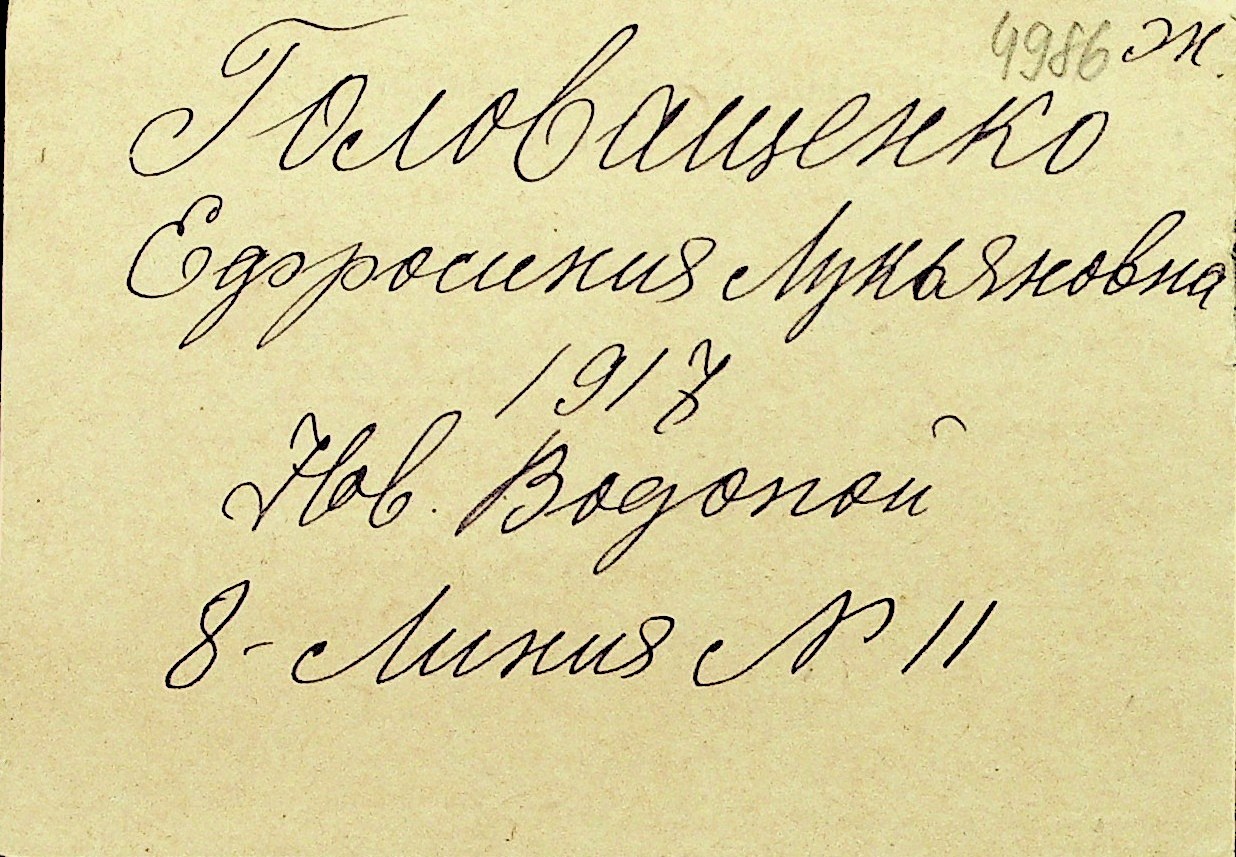 4986 ж.
Головащенко
Ефросиния Лукьяновна
1917
Нов. Водопой
8- Линия № 11